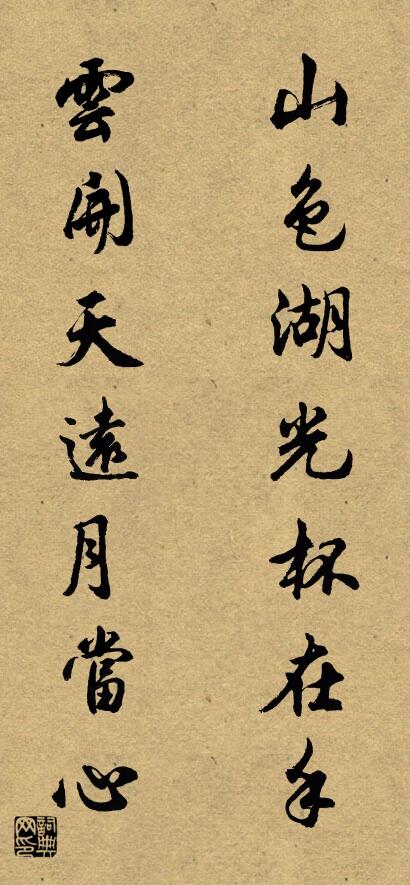 山色湖光杯在手
雲開天遠月當心
詞典网印